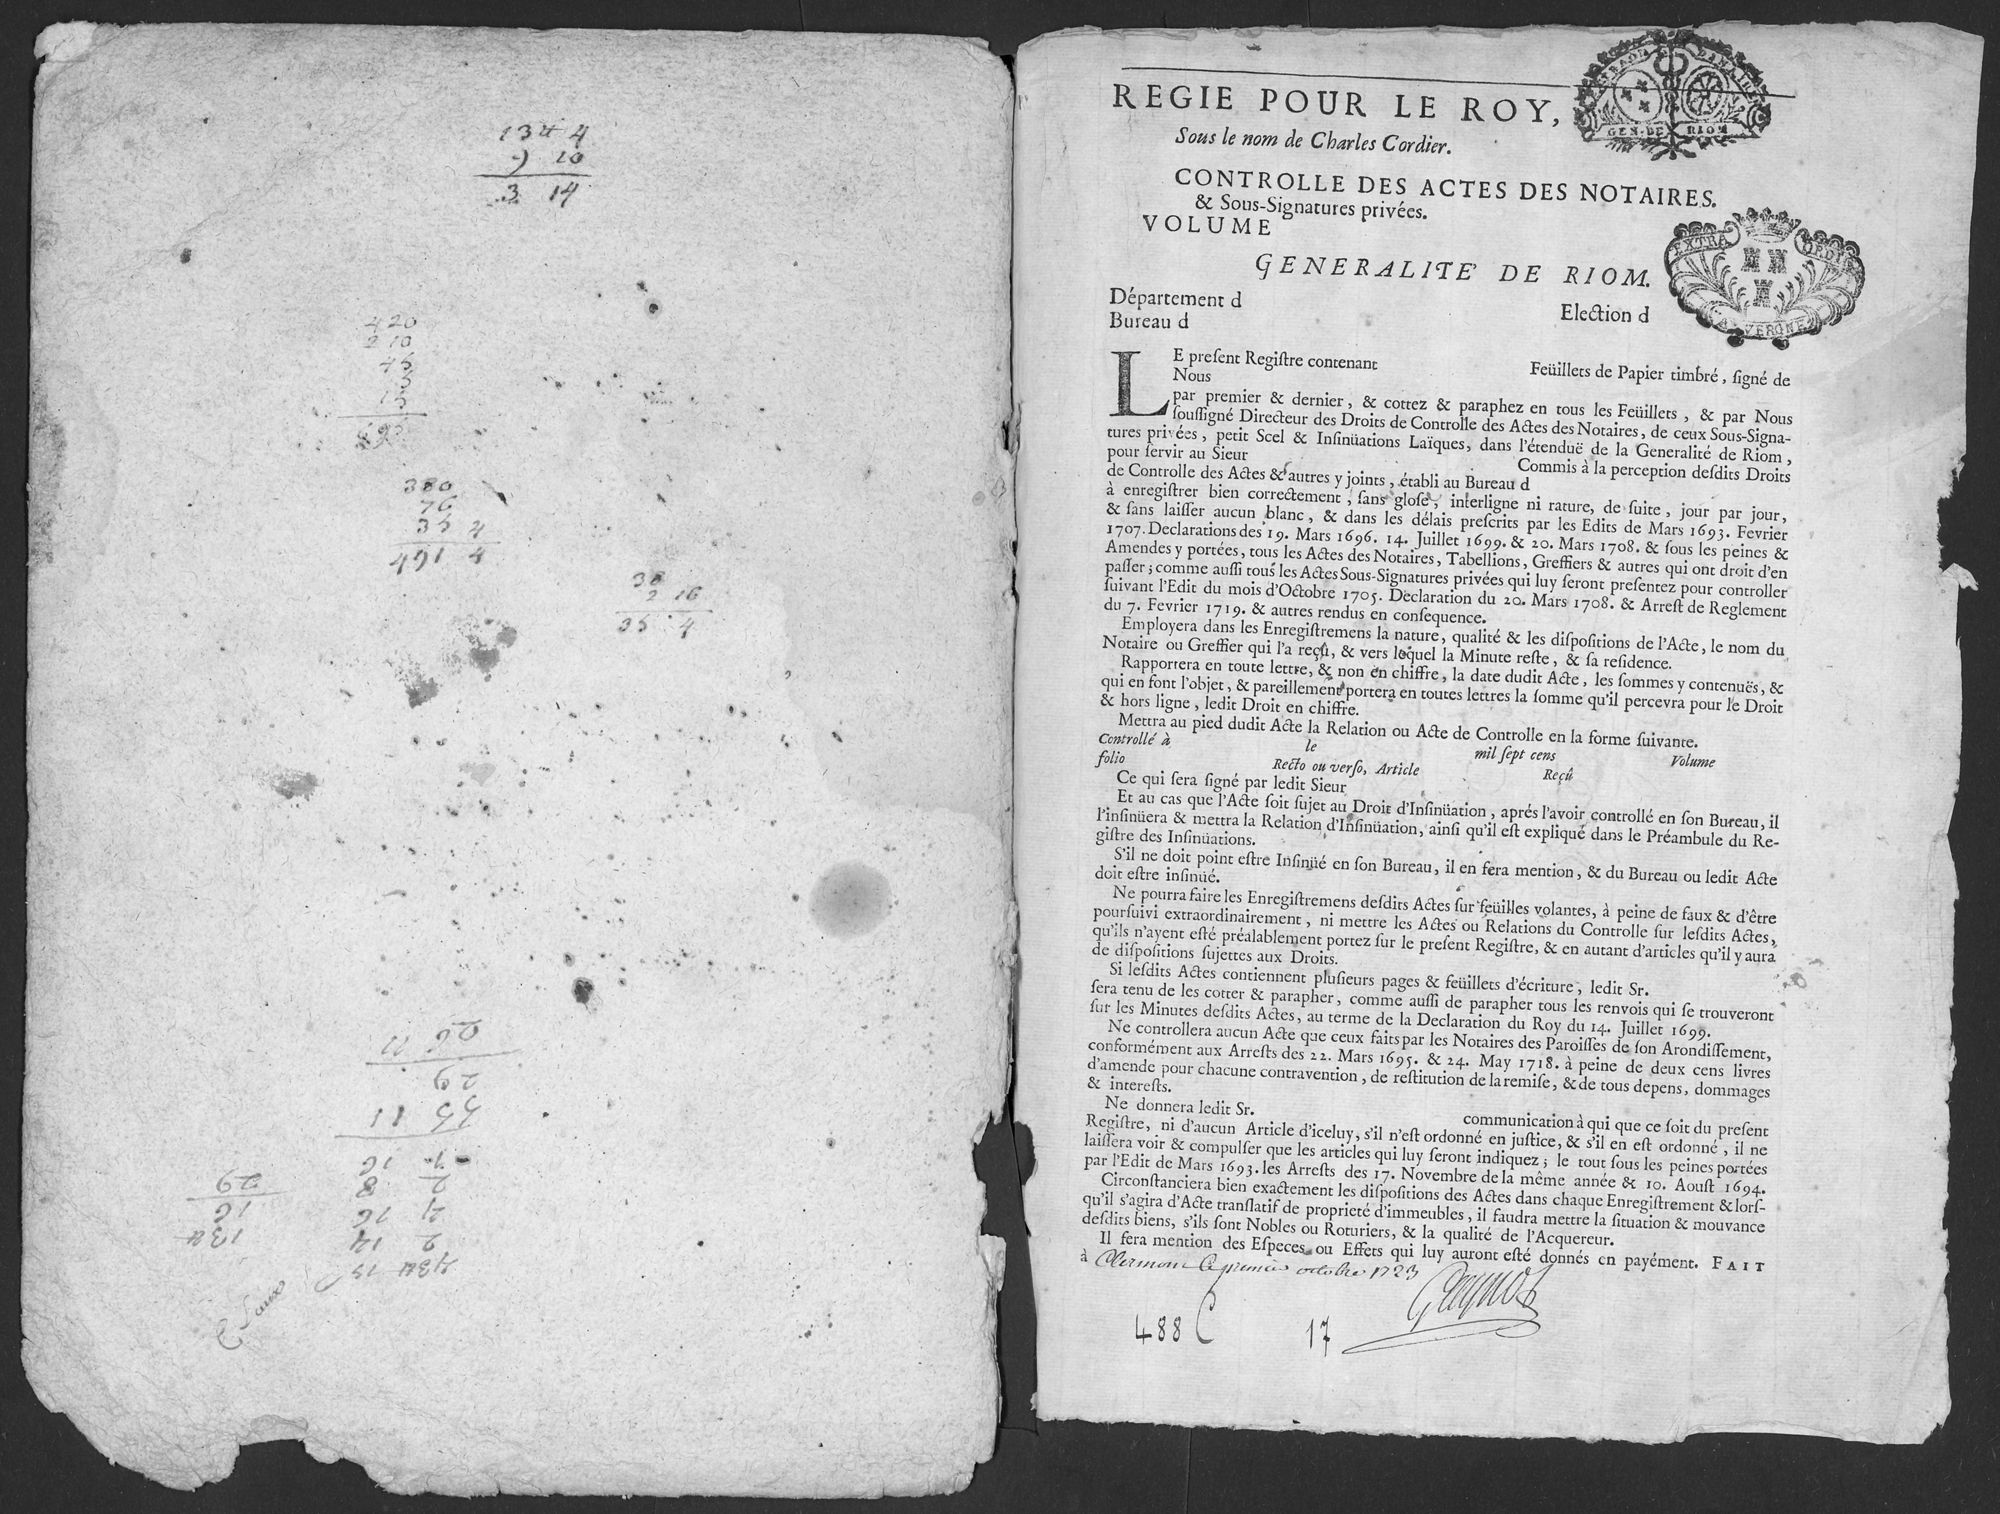 1344
9 10
3 14
420
210
45
15
380
76
35 4
491 4
38
2 16
35 4
26 11
29
55 11
29
16
134
REGIE POUR LE ROY,
Sous le nom de Charles Cordier.
CONTROLLE DES ACTES DES NOTAIRES.
& Sous-Signatures privées.
VOLUME
GENERALITE' DE RIOM.
Département d
Election d
Bureau d
EXTRAORDINAIRE
GEN·DE RIOM
EXTRA ORDIN
AVVERGNE
LE preſent Regiſtre contenant Feüillets de Papier timbré, ſigné de
Nous
par premier & dernier, & cottez & paraphez en tous les Feüillets, & par Nous
ſouſſigné Directeur des Droits de Controlle des Actes des Notaires, de ceux Sous-Signa-
tures privées, petit Scel & Inſinüations Laïques, dans l'étenduë de la Generalité de Riom,
pour ſervir au Sieur Commis à la perception deſdits Droits
de Controlle des Actes & autres y joints, établi au Bureau d
à enregiſtrer bien correctement, ſans gloſe, interligne ni rature, de ſuite, jour par jour,
& ſans laiſſer aucun blanc, & dans les délais preſcrits par les Edits de Mars 1693. Fevrier
1707. Declarations des 19. Mars 1696. 14. Juillet 1699. & 20. Mars 1708. & ſous les peines &
Amendes y portées, tous les Actes des Notaires, Tabellions, Greffiers & autres qui ont droit d'en
paſſer; comme auſſi tous les Actes Sous-Signatures privées qui luy ſeront preſentez pour controller
ſuivant l'Edit du mois d'Octobre 1705. Declaration du 20. Mars 1708. & Arreſt de Reglement
du 7. Fevrier 1719. & autres rendus en conſequence.
Employera dans les Enregiſtremens la nature, qualité & les diſpoſitions de l'Acte, le nom du
Notaire ou Greffier qui l'a reçû, & vers lequel la Minute reſte, & ſa reſidence.
Rapportera en toute lettre, & non en chiffre, la date dudit Acte, les ſommes y contenuës, &
qui en font l'objet, & pareillement portera en toutes lettres la ſomme qu'il percevra pour le Droit
& hors ligne, ledit Droit en chiffre.
Mettra au pied dudit Acte la Relation ou Acte de Controlle en la forme ſuivante.
Controllé à le mil ſept cens Volume
folio Recto ou verſo, Article Reçû
Ce qui ſera ſigné par ledit Sieur
Et au cas que l'Acte ſoit ſujet au Droit d'Inſinüation, aprés l'avoir controllé en ſon Bureau, il
l'inſinüera & mettra la Relation d'Inſinüation, ainſi qu'il eſt expliqué dans le Préambule du Re-
giſtre des Inſinüations.
S'il ne doit point eſtre Inſinüé en ſon Bureau, il en fera mention, & du Bureau ou ledit Acte
doit eſtre inſinüé.
Ne pourra faire les Enregiſtremens deſdits Actes ſur feüilles volantes, à peine de faux & d'être
pourſuivi extraordinairement, ni mettre les Actes ou Relations du Controlle ſur leſdits Actes,
qu'ils n'ayent eſté préalablement portez ſur le preſent Regiſtre, & en autant d'articles qu'il y aura
de diſpoſitions ſujettes aux Droits.
Si leſdits Actes contiennent pluſieurs pages & feüillets d'écriture, ledit Sr.
ſera tenu de les cotter & parapher, comme auſſi de parapher tous les renvois qui ſe trouveront
ſur les Minutes deſdits Actes, au terme de la Declaration du Roy du 14. Juillet 1699.
Ne controllera aucun Acte que ceux faits par les Notaires des Paroiſſes de ſon Arondiſſement,
conformément aux Arreſts des 22. Mars 1695. & 24. May 1718. à peine de deux cens livres
d'amende pour chacune contravention, de reſtitution de la remiſe, & de tous depens, dommages
& intereſts.
Ne donnera ledit Sr. communication à qui que ce ſoit du preſent
Regiſtre, ni d'aucun Article d'iceluy, s'il n'eſt ordonné en juſtice, & s'il en eſt ordonné, il ne
laiſſera voir & compulſer que les articles qui luy ſeront indiquez; le tout ſous les peines portées
par l'Edit de Mars 1693. les Arreſts des 17. Novembre de la même année & 10. Aouſt 1694.
Circonſtanciera bien exactement les diſpoſitions des Actes dans chaque Enregiſtrement & lorſ-
qu'il s'agira d'Acte tranſlatif de proprieté d'immeubles, il faudra mettre la ſituation & mouvance
deſdits biens, s'ils ſont Nobles ou Roturiers, & la qualité de l'Acquereur.
Il fera mention des Eſpeces ou Effets qui luy auront eſté donnés en payément. FAIT
à Clermont le premier octobre 1723
488 C 17